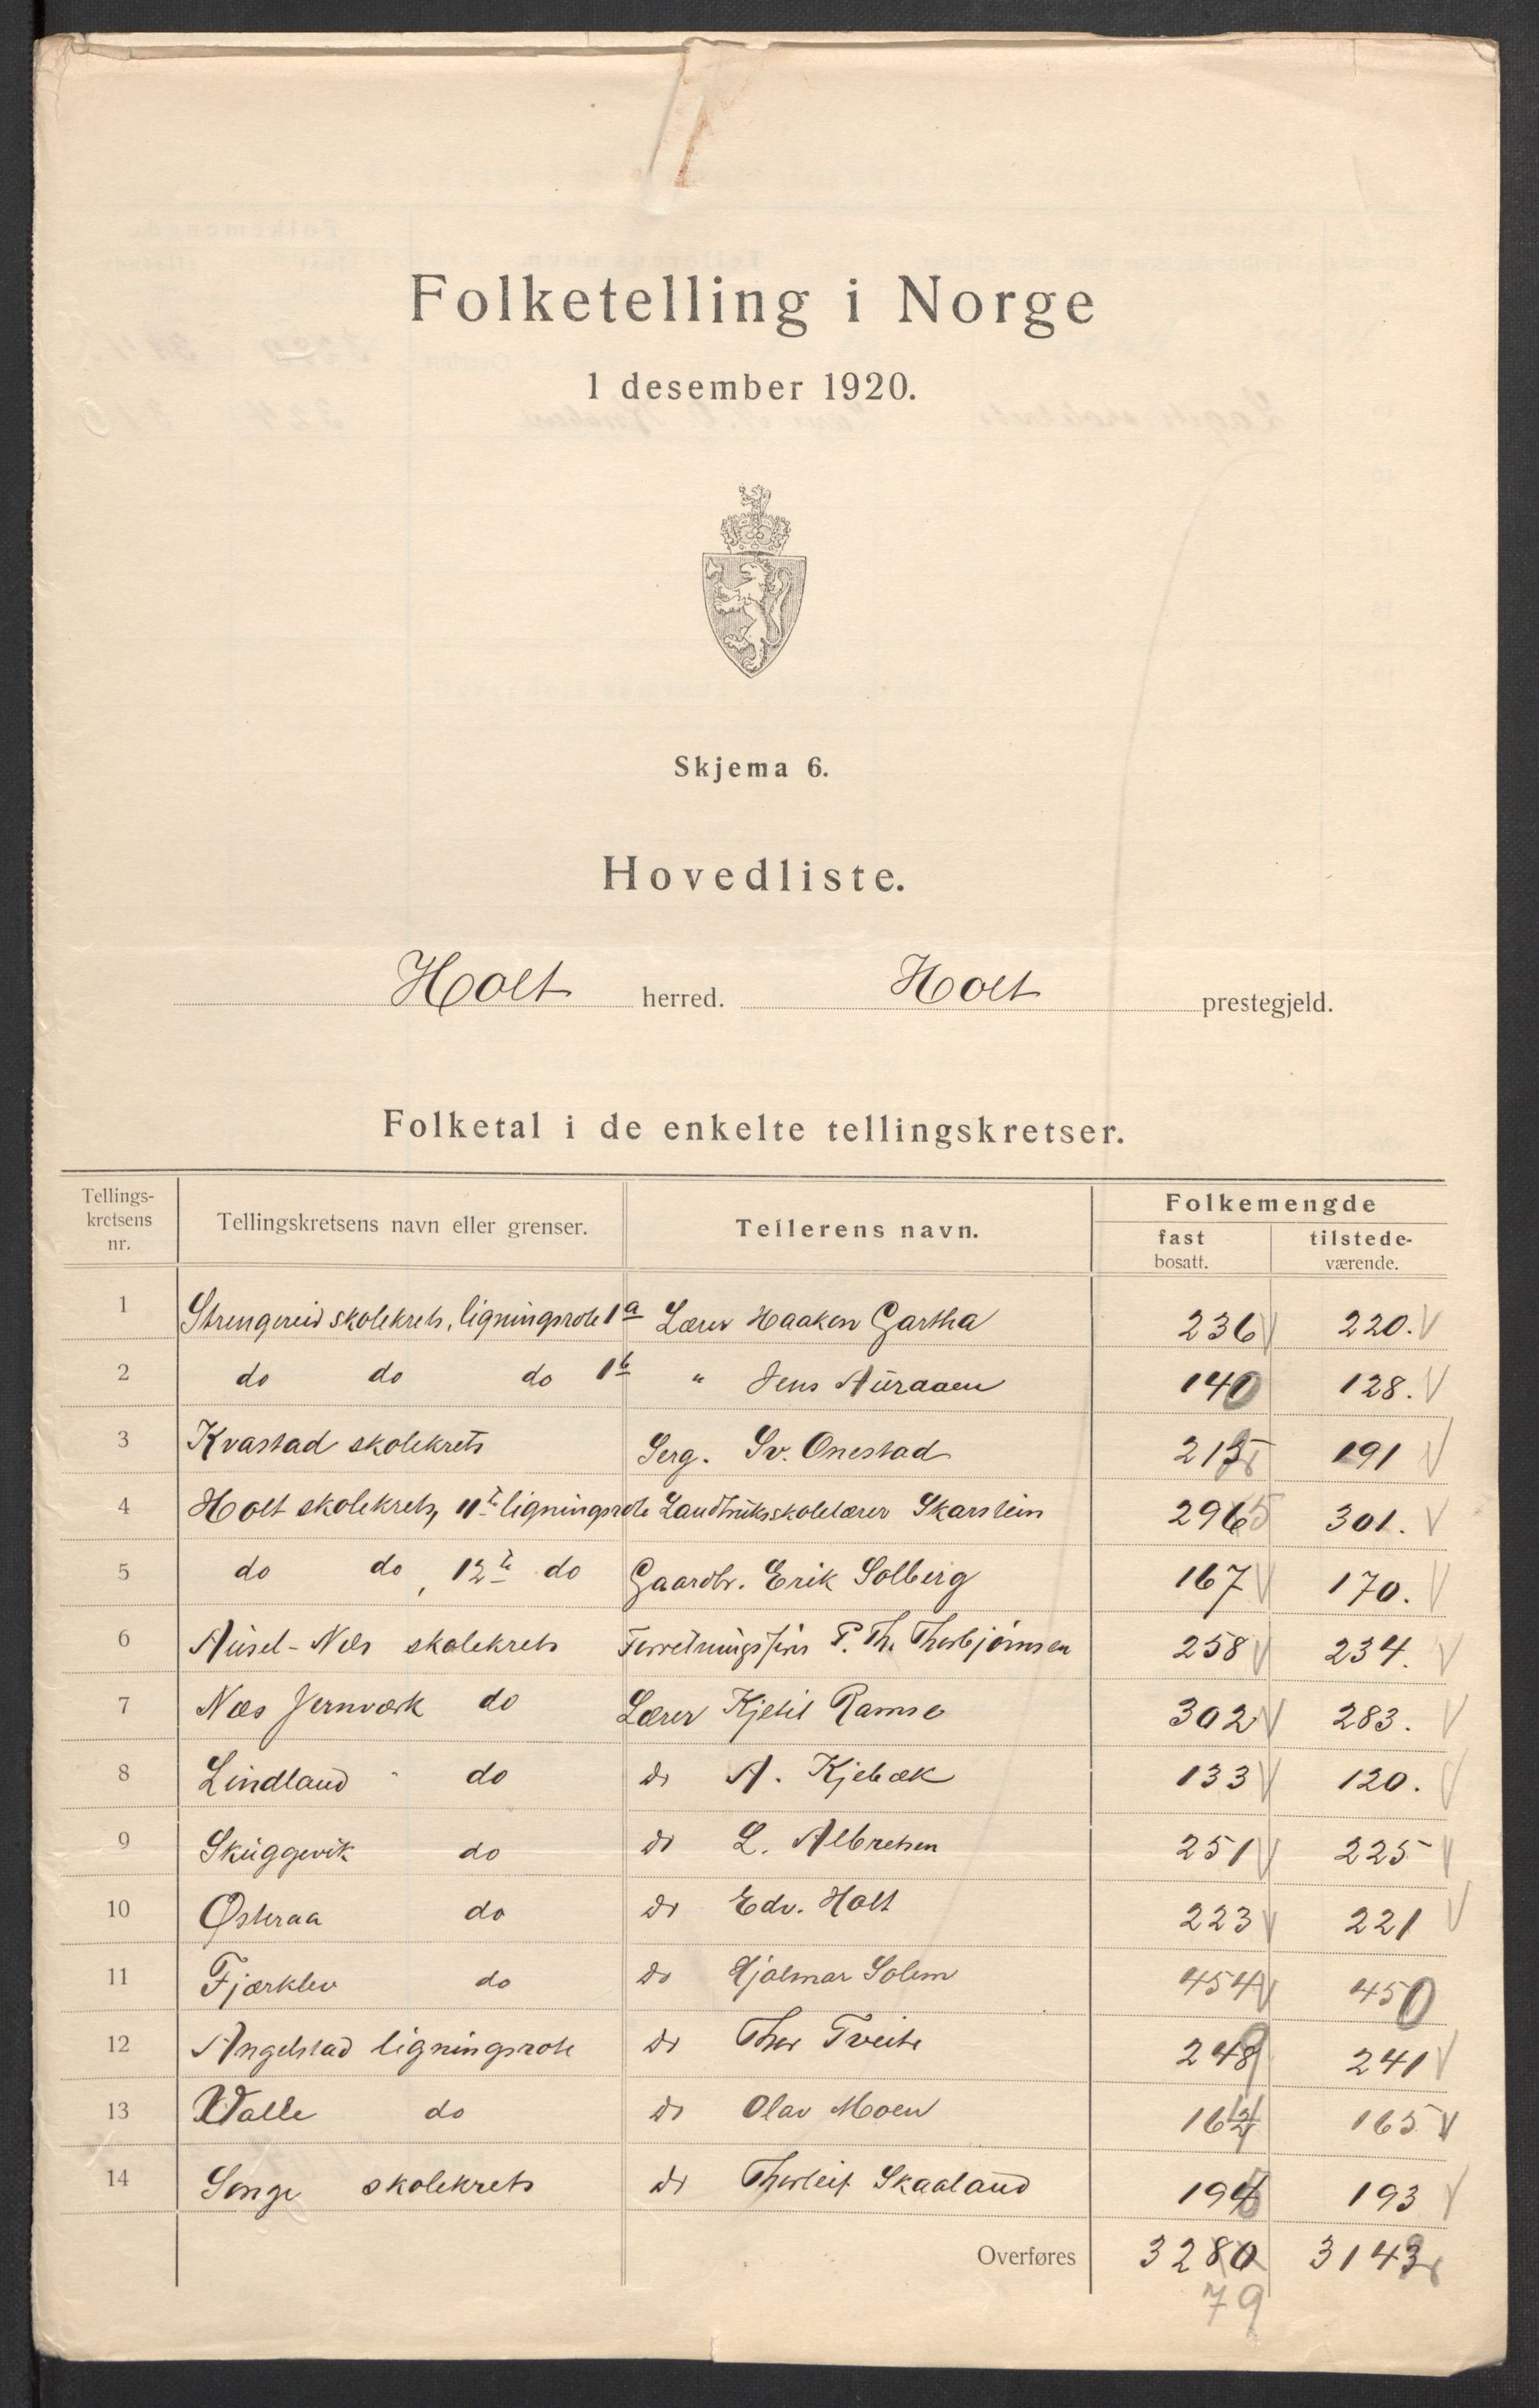 Folketelling i Norge
1 desember 1920.
Skjema 6.
Hovedliste.
Holt herred. Holt prestegjeld.
Folketal i de enkelte tellingskretser.
Tellings-kretsens nr. Tellingskretsens navn eller grenser. Tellerens navn. Folkemengde fast bosatt. tilstede-værende.
1 Strengereid skolekrets, ligningsrote 1a Lærer Haakon Gartha 236 220.
2 do do do 1b " Jens Auraaen 140 128.
3 Kvastad skolekrets Serg. Sv. Onestad 215 191
4 Holt skolekrets, 11te ligningsrote Landbruksskolelærer Skarstein 296 5 301.
5 do do, 12te do Gaardbr. Erik Solberg 167 170.
6 Ausel-Næs skolekrets Forretningsfører P. Th. Thorbjørnsen 258 234.
7 Næs Jernværk do Lærer Kjetil Ramse 302 283.
8 Lindland " do do A. Kjebæk 133 120.
9 Skuggevik do do L. Albretsen 251 225
10 Østeraa do do Edv. Holt 223 221
11 Fjærklev do do Hjalmar Solem 454 450
12 Angelstad ligningsrote do Thor Tveite 249 241
13 Valle do do Olav Moen 164 165
14 Songe skolekrets do Thorleif Skaaland 194 193
Overføres 3280 3142
79